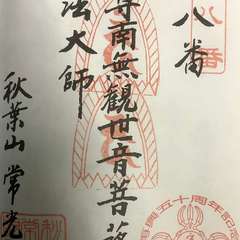 八番
南無觀世音菩薩
法大師
秋葉山 常光
五十周年記念